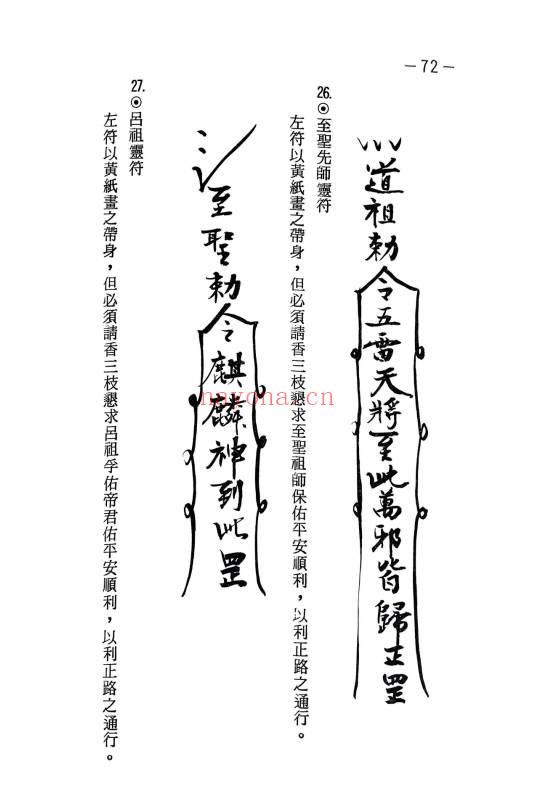 －72－
道祖勅令五雷天將至此萬邪皆歸正罡
26.◉至聖先師靈符
左符以黃紙畫之帶身，但必須請香三枝懇求至聖祖師保佑平安順利，以利正路之通行。
至聖勅令麒麟神到此罡
27.◉呂祖靈符
左符以黃紙畫之帶身，但必須請香三枝懇求呂祖孚佑帝君佑平安順利，以利正路之通行。
nayona.cn